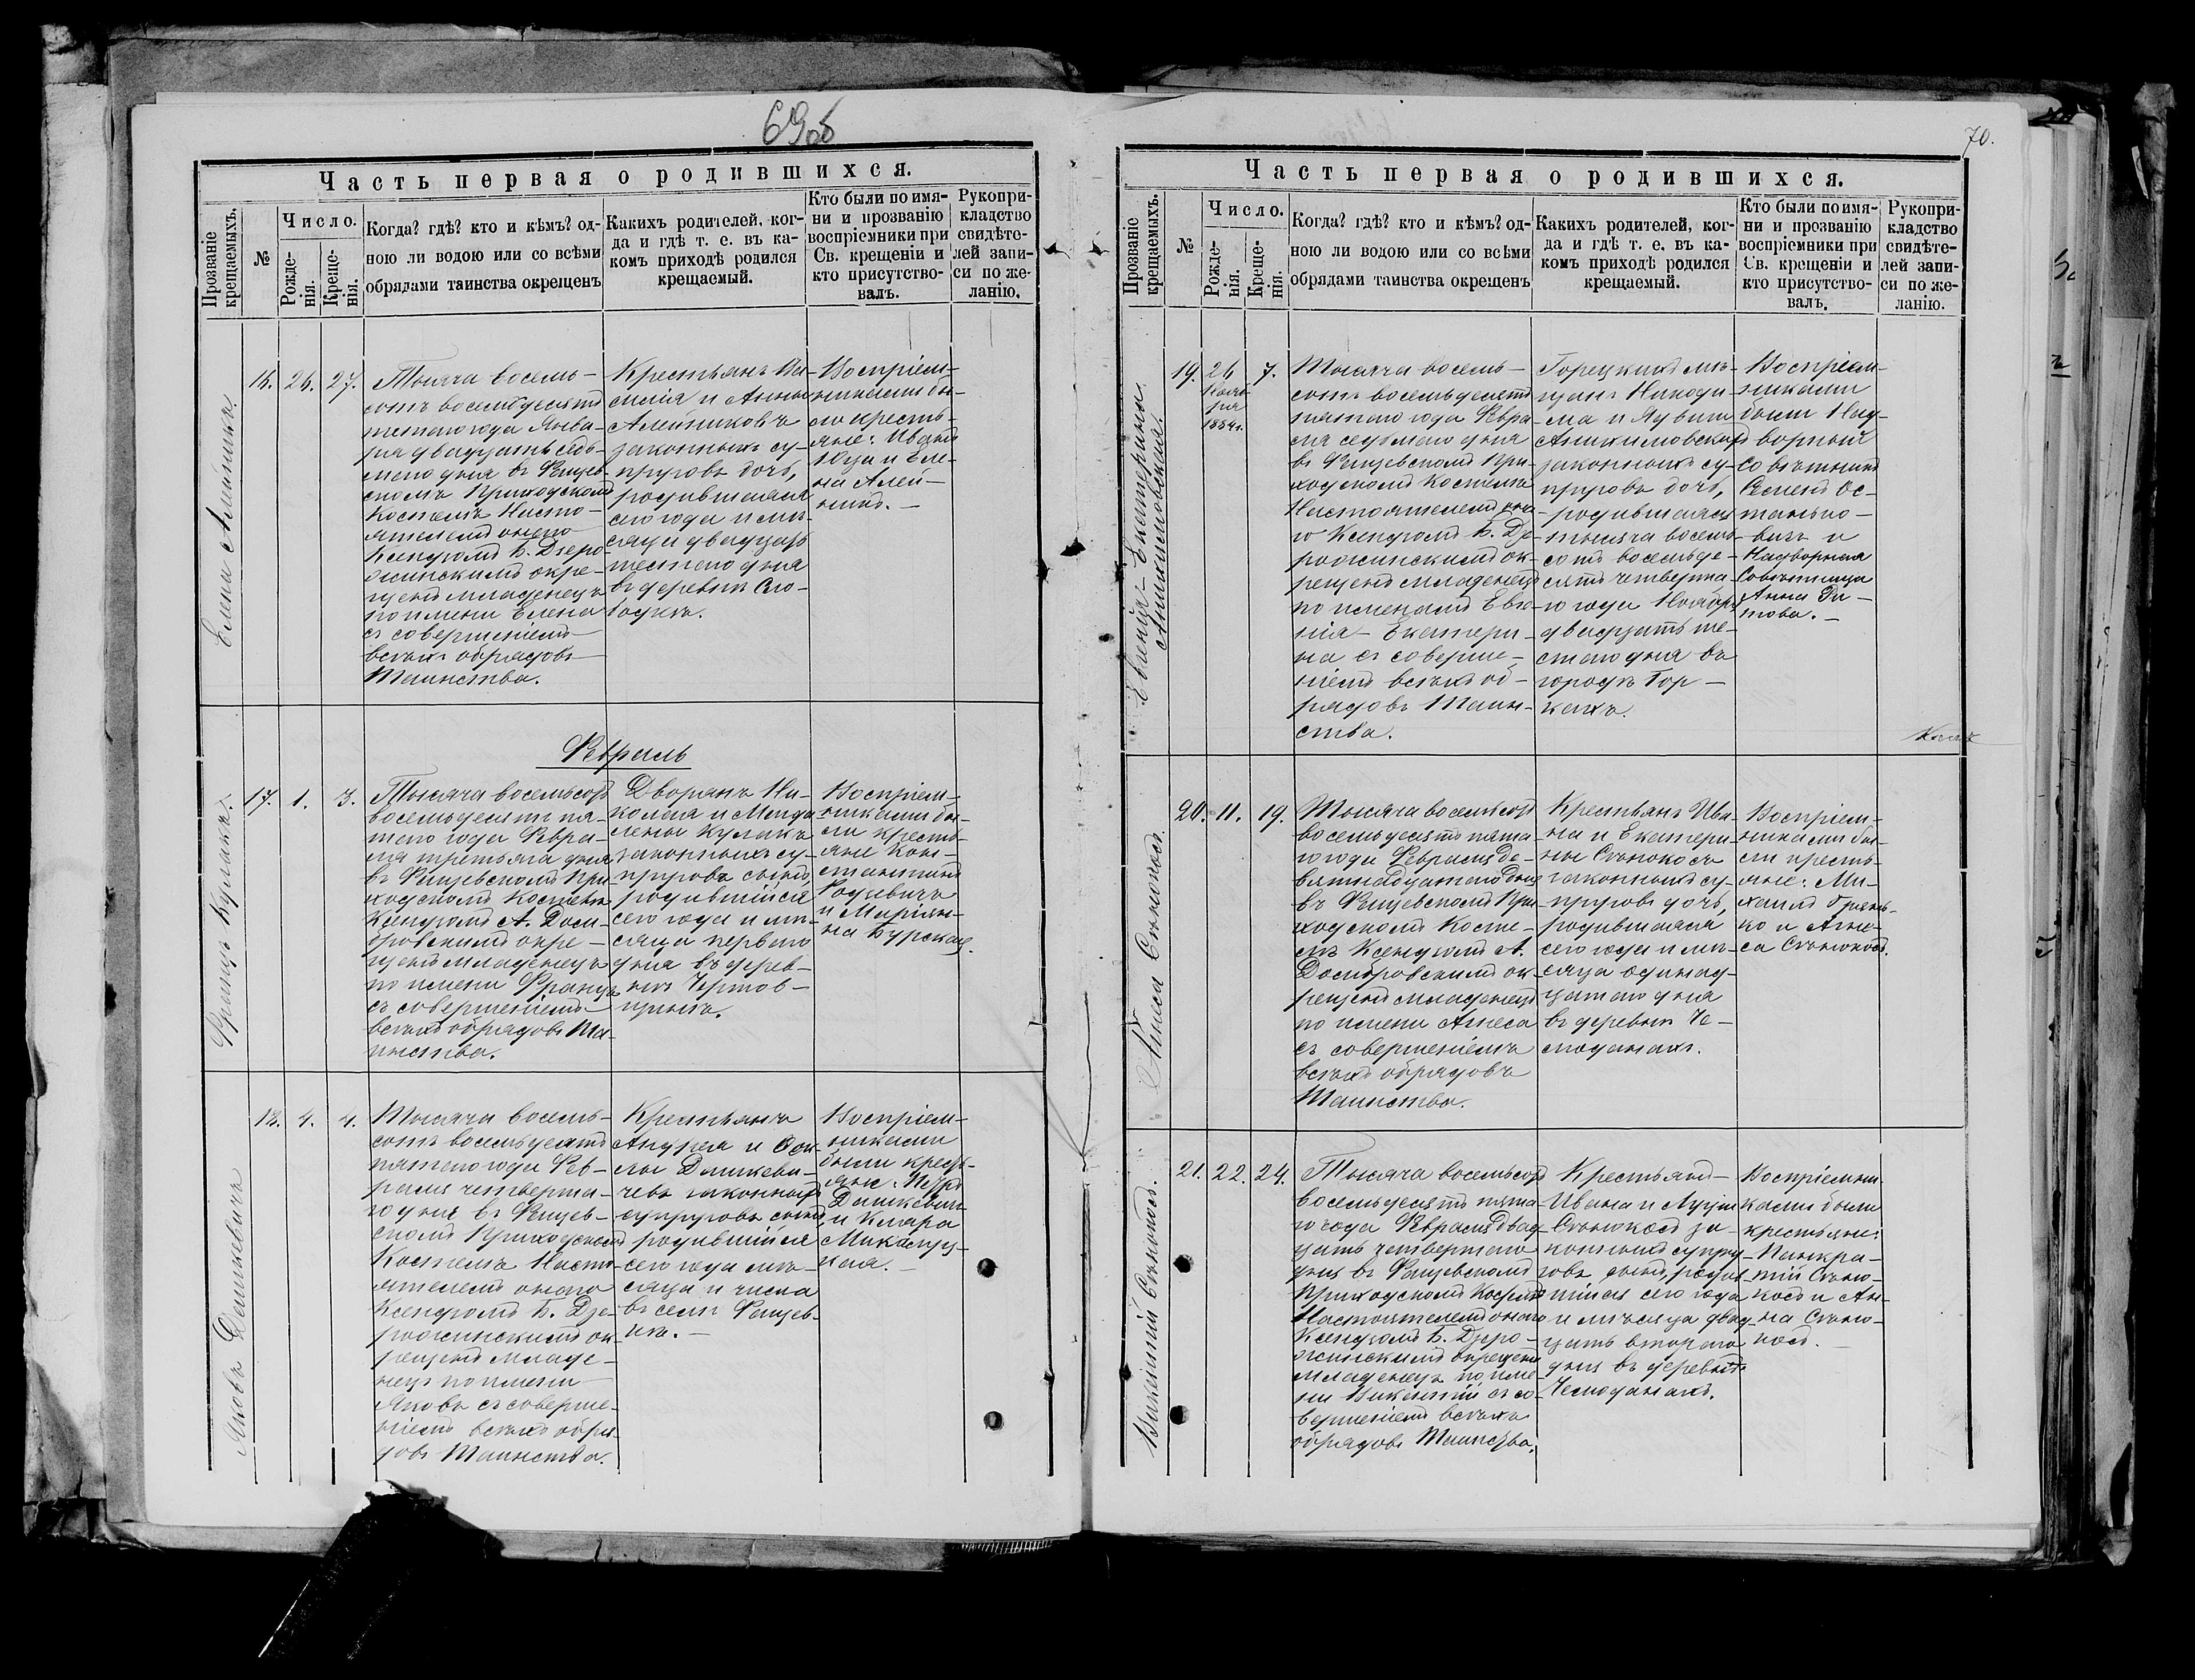 69об
Часть первая о родившихся.
Прозваніе крещаемыхъ.
№
Число.
Рожде-
нія.
Креще-
нія.
Когда? гдѣ? кто и кѣмъ? од-
ною ли водою или со всѣми
обрядами таинства окрещенъ
Какихъ родителей, ког-
да и гдѣ т. е. въ ка-
комъ приходѣ родился
крещаемый.
Кто были по имя-
ни и прозванію
воспріемники при
Св. крещеніи и
кто присутство-
валъ.
Рукопри-
кладство
свидѣте-
лей запи-
си по же-
ланію.
Елена Алейника.
16. 26. 27.
Тысяча восемь-
сотъ восемьдесятъ
пятаго года Янва-
ря двадцать седь-
маго дня въ
скомъ Приходскомъ
Костелѣ Насто-
ятелемъ онаго
Ксендзомъ Б. Дзеро-
жинскимъ окре-
щенъ младенецъ
по имени Елена
съ совершеніемъ
всѣхъ обрядовъ
Таинства.
Крестьянъ Ва-
силія и Анны
Алейниковъ
законныхъ су-
пруговъ дочь,
родившаяся
сего года и мѣ-
сяца двадцать
шестаго дня
въ деревнѣ Сло-
бодкѣ.
Воспріем-
никами бы-
ли кресть-
яне: Иванъ
и Еле-
на Алей-
никъ.
Февраль
Францъ Кулакъ.
17. 1. 3.
Тысяча восемьсотъ
восемьдесятъ пя-
таго года Февра-
ля третьяго дня
въ При-
ходскомъ Костелѣ
Ксендзомъ А. Доси-
бровскимъ окре-
щенъ младенецъ
по имени Францъ
съ совершеніемъ
всѣхъ обрядовъ Та-
инства.
Дворянъ Ни-
колая и Магда-
лены Кулакъ
законныхъ су-
пруговъ сынъ,
родившійся
сего года и мѣ-
сяца перваго
дня въ дерев-
нѣ
Воспріем-
никами бы-
ли кресть-
яне Кон-
стантинъ
Родевичъ
и Маріан-
на Бурская.
Яковъ Дашкевичъ
18. 4. 4.
Тысяча восемь-
сотъ восемьдесятъ
пятаго года Фев-
раля четверта-
го дня въ
скомъ Приходскомъ
Костелѣ Насто-
ятелемъ онаго
Ксендзомъ Б. Дзе-
рожинскимъ ок-
рещенъ младе-
нецъ по имени
Яковъ съ соверше-
ніемъ всѣхъ обря-
довъ Таинства.
Крестьянъ
Андрея и
Дашкеви-
чевъ законныхъ
супруговъ сынъ,
родившійся
сего года мѣ-
сяца и числа
въ селѣ
Воспріем-
никами
были кресть-
яне: Петръ
Дашкевичъ
и Клара
70.
Часть первая о родившихся.
Прозваніе крещаемыхъ.
№
Число.
Рожде-
нія.
Креще-
нія.
Когда? гдѣ? кто и кѣмъ? од-
ною ли водою или со всѣми
обрядами таинства окрещенъ
Какихъ родителей, ког-
да и гдѣ т. е. въ ка-
комъ приходѣ родился
крещаемый.
Кто были по имя-
ни и прозванію
воспріемники при
Св. крещеніи и
кто присутство-
валъ.
Рукопри-
кладство
свидѣте-
лей запи-
си по же-
ланію.
Евгенія-Екатерина
Аникимовская.
19. 26 7.
Нояб-
ря
1884 г.
Тысяча восемь-
сотъ восемьдесятъ
пятаго года Февра-
ля седьмаго дня
въ При-
ходскомъ Костелѣ
Настоятелемъ она-
го Ксендзомъ Б. Дзе-
рожинскимъ ок-
рещенъ младенецъ
по именамъ Евге-
нія-Екатери-
на съ соверше-
ніемъ всѣхъ об-
рядовъ Таин-
ства.
Горецкихъ мѣ-
щанъ Никоди-
ма и Ядвиги
Аникимовскихъ
законныхъ су-
пруговъ дочь,
родившаяся
тысяча восемь-
сотъ восемьде-
сятъ четверта-
го года Ноября
двадцать ше-
стаго дня въ
городѣ Гор-
кахъ.
Воспріем-
никами
были Над-
ворный
Совѣтникъ
и
Надворная
Совѣтница
Анна
Агнеса Сѣнокосъ.
20. 11. 19.
Тысяча восемьсотъ
восемьдесятъ пята-
го года Февраля де-
вятнадцатаго дня
въ При-
ходскомъ Косте-
лѣ Ксендзомъ А.
Досибровскимъ ок-
рещенъ младенецъ
по имени Агнеса
съ совершеніемъ
всѣхъ обрядовъ
Таинства.
Крестьянъ Ива-
на и Екатери-
ны Сѣнокосъ
законныхъ су-
пруговъ дочь,
родившаяся
сего года и мѣ-
сяца одиннад-
цатаго дня
въ деревнѣ Че-
моданахъ.
Воспріем-
никами бы-
ли кресть-
яне: Ми-
хаилъ
и Агне-
са Сѣнокосъ.
Викентій Сѣнокосъ.
21. 22. 24.
Тысяча восемьсотъ
восемьдесятъ пята-
го года Февраля двад-
цать четвертаго
дня въ
Приходскомъ Костелѣ
Настоятелемъ онаго
Ксендзомъ Б. Дзеро-
жинскимъ окрещенъ
младенецъ по име-
ни Викентій съ со-
вершеніемъ всѣхъ
обрядовъ Таинства.
Крестьянъ
Ивана и Луціи
Сѣнокосъ за-
конныхъ супру-
говъ сынъ, родив-
шійся сего года
и мѣсяца двад-
цать втораго
дня въ деревнѣ
Чемоданахъ.
Воспріемни-
ками были
крестьяне:
Панкра-
тій Сѣно-
косъ и Ан-
на Сѣно-
косъ.